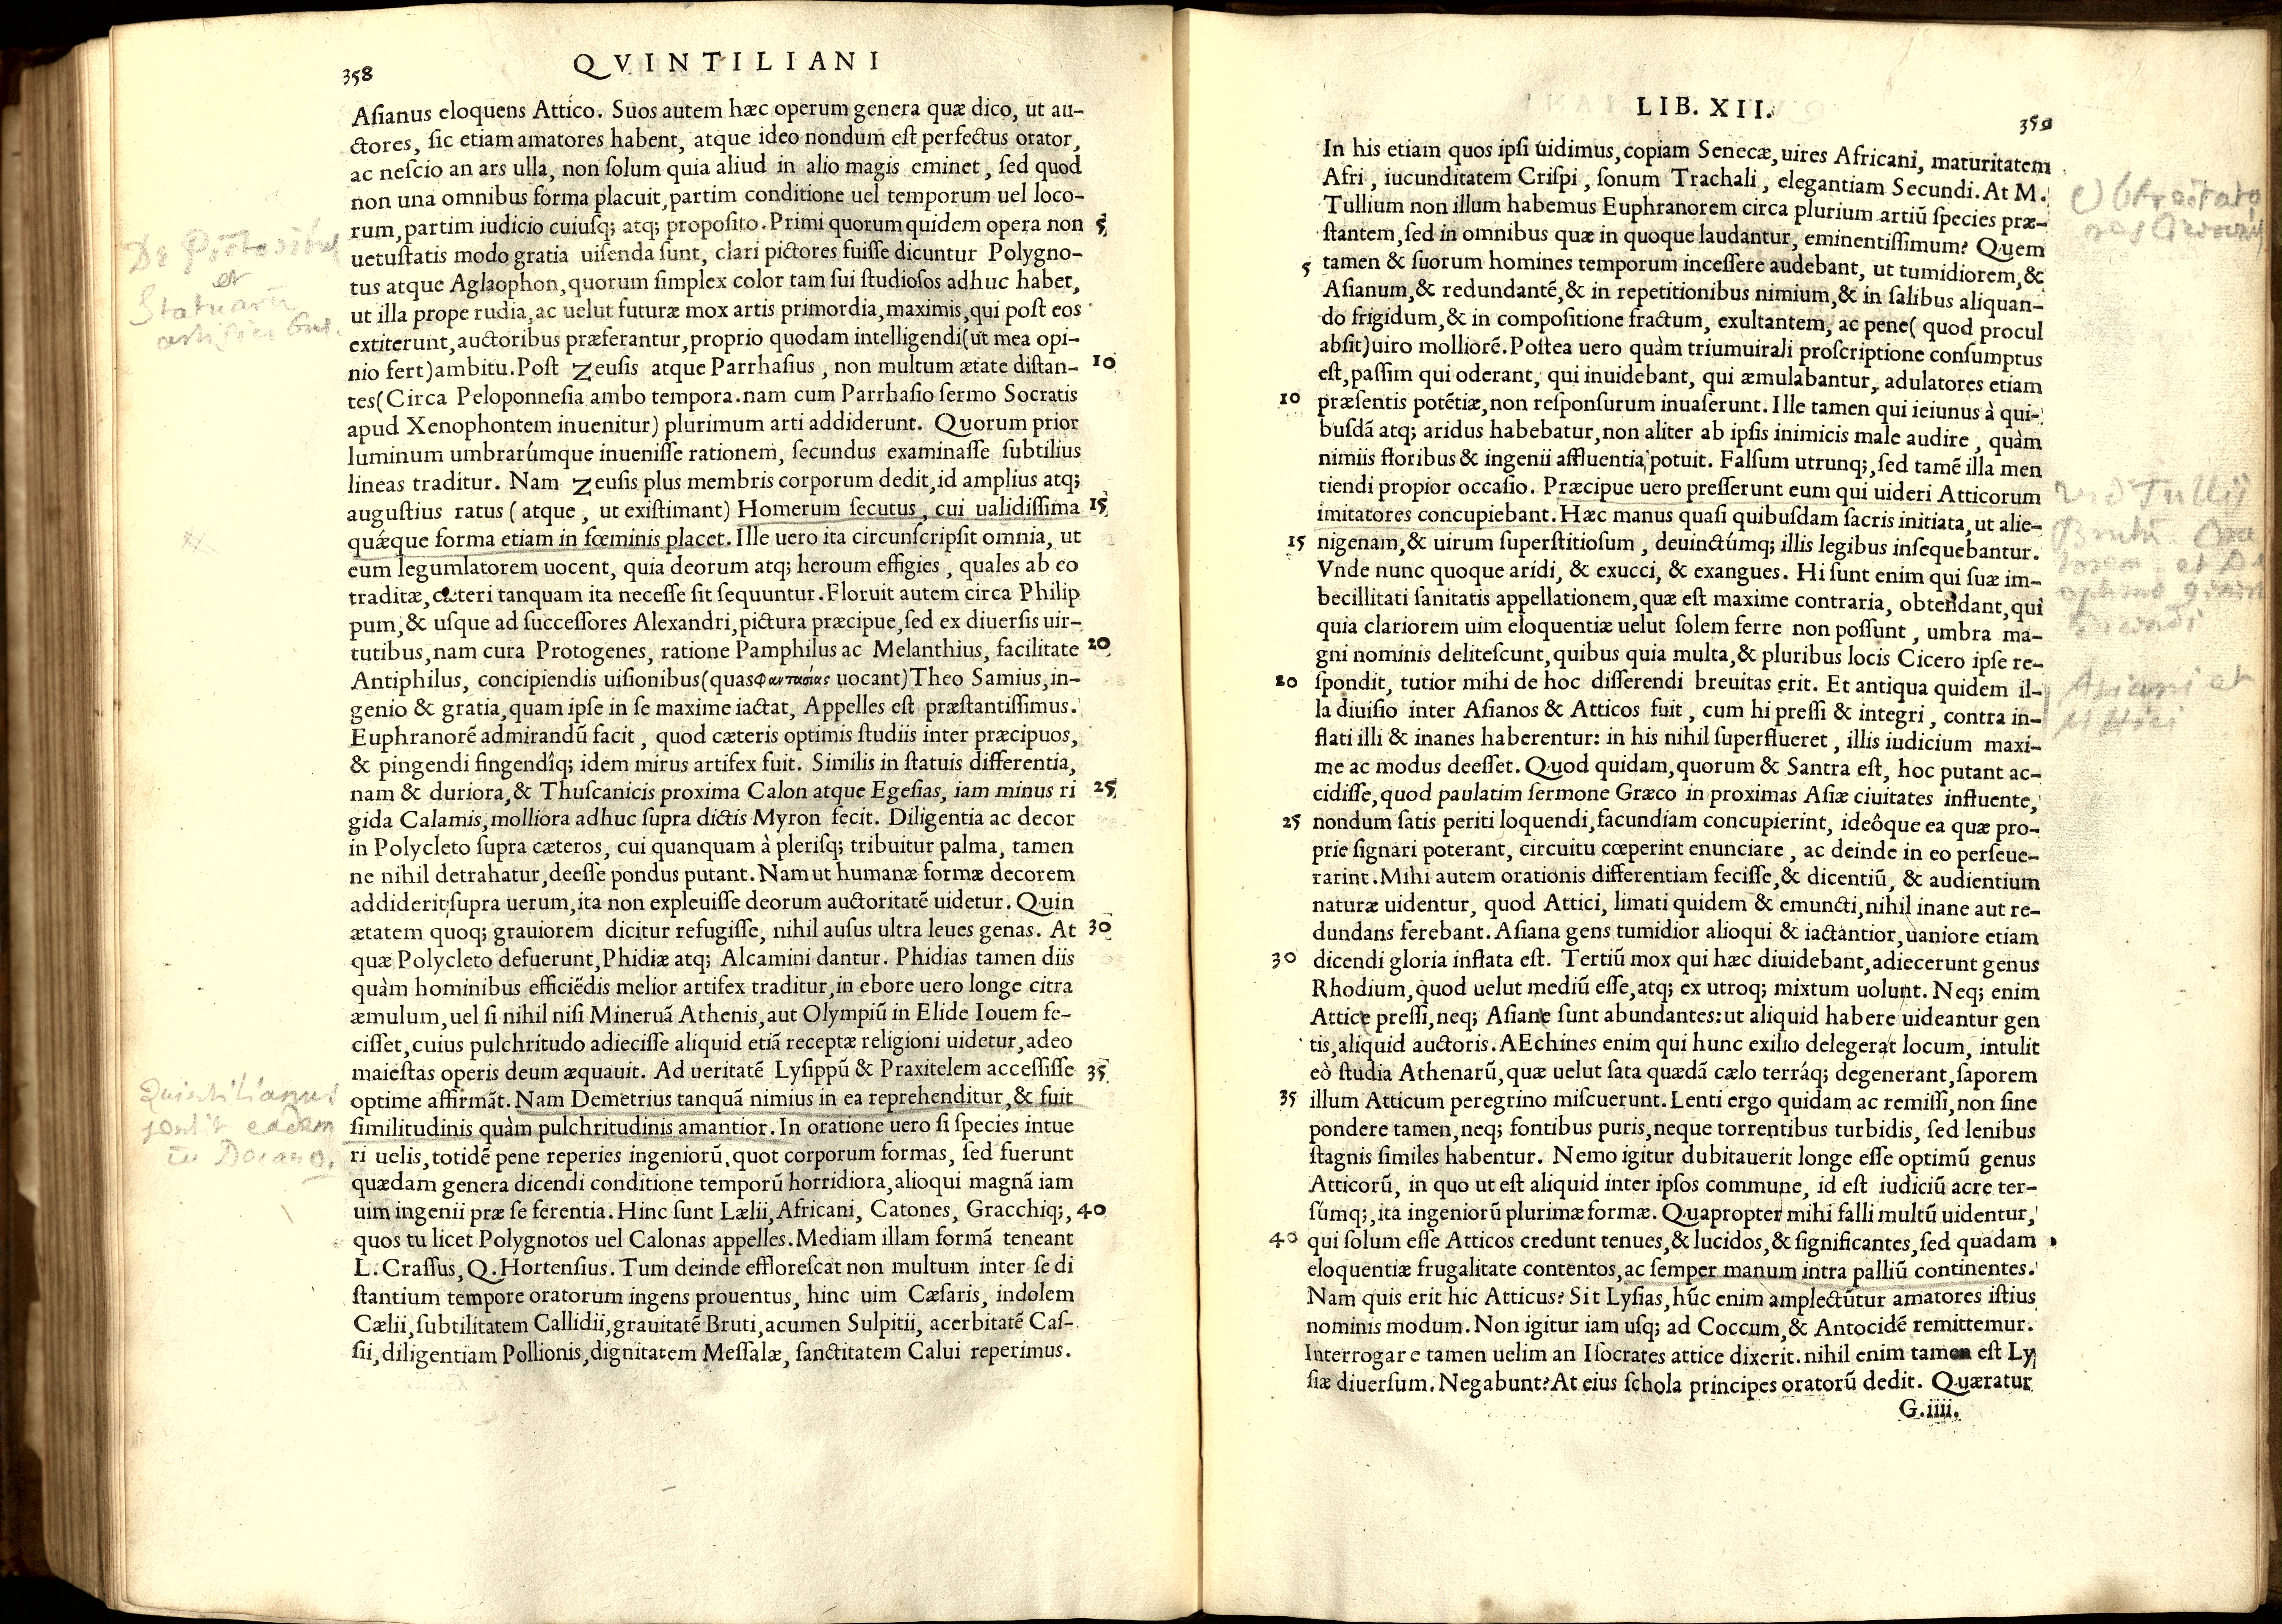 QVINTILIANI
358
Aſianus eloquens Attico. Suos autem hæc operum genera quæ dico, ut au-
ctores, ſic etiam amatores habent, atque ideo nondum eſt perfectus orator,
ac neſcio an ars ulla, non ſolum quia aliud in alio magis eminet, ſed quod
non una omnibus forma placuit, partim conditione uel temporum uel loco-
rum, partim iudicio cuiuſq; atq; propoſito. Primi quorum quidem opera non 5
uetuſtatis modo gratia uiſenda ſunt, clari pictores fuiſſe dicuntur Polygno-
tus atque Aglaophon, quorum ſimplex color tam ſui ſtudioſos adhuc habet,
ut illa prope rudia, ac uelut futuræ mox artis primordia, maximis, qui poſt eos
extiterunt, auctoribus præferantur, proprio quodam intelligendi (ut mea opi-
nio fert) ambitu. Poſt Zeuſis atque Parrhaſius, non multum ætate diſtan- 10
tes (Circa Peloponneſia ambo tempora. nam cum Parrhaſio ſermo Socratis
apud Xenophontem inuenitur) plurimum arti addiderunt. Quorum prior
luminum umbrarúmque inueniſſe rationem, ſecundus examinaſſe ſubtilius
lineas traditur. Nam Zeuſis plus membris corporum dedit, id amplius atq;
auguſtius ratus (atque, ut exiſtimant) Homerum ſecutus, cui ualidiſſima 15
quǽque forma etiam in fœminis placet. Ille uero ita circunſcripſit omnia, ut
eum legumlatorem uocent, quia deorum atq; heroum effigies, quales ab eo
traditæ, cæteri tanquam ita neceſſe ſit ſequuntur. Floruit autem circa Philip
pum, & uſque ad ſucceſſores Alexandri, pictura præcipue, ſed ex diuerſis uir-
tutibus, nam cura Protogenes, ratione Pamphilus ac Melanthius, facilitate 20
Antiphilus, concipiendis uiſionibus (quas φαντασίας uocant) Theo Samius, in-
genio & gratia, quam ipſe in ſe maxime iactat, Appelles eſt præſtantiſſimus.
Euphranorē admirandū facit, quod cæteris optimis ſtudiis inter præcipuos,
& pingendi fingendîq; idem mirus artifex fuit. Similis in ſtatuis differentia,
nam & duriora, & Thuſcanicis proxima Calon atque Egeſias, iam minus ri 25
gida Calamis, molliora adhuc ſupra dictis Myron fecit. Diligentia ac decor
in Polycleto ſupra cæteros, cui quanquam à pleriſq; tribuitur palma, tamen
ne nihil detrahatur, deeſſe pondus putant. Nam ut humanæ formæ decorem
addiderit ſupra uerum, ita non expleuiſſe deorum auctoritatē uidetur. Quin
ætatem quoq; grauiorem dicitur refugiſſe, nihil auſus ultra leues genas. At 30
quæ Polycleto defuerunt, Phidiæ atq; Alcamini dantur. Phidias tamen diis
quàm hominibus efficiēdis melior artifex traditur, in ebore uero longe citra
æmulum, uel ſi nihil niſi Mineruā Athenis, aut Olympiū in Elide Iouem fe-
ciſſet, cuius pulchritudo adieciſſe aliquid etiā receptæ religioni uidetur, adeo
maieſtas operis deum æquauit. Ad ueritatē Lyſippū & Praxitelem acceſſiſſe 35
optime affirmāt. Nam Demetrius tanquā nimius in ea reprehenditur, & fuit
ſimilitudinis quàm pulchritudinis amantior. In oratione uero ſi ſpecies intue
ri uelis, totidē pene reperies ingeniorū, quot corporum formas, ſed fuerunt
quædam genera dicendi conditione temporū horridiora, alioqui magnā iam
uim ingenii præ ſe ferentia. Hinc ſunt Lælii, Africani, Catones, Gracchiq;, 40
quos tu licet Polygnotos uel Calonas appelles. Mediam illam formā teneant
L. Craſſus, Q. Hortenſius. Tum deinde effloreſcat non multum inter ſe di
ſtantium tempore oratorum ingens prouentus, hinc uim Cæſaris, indolem
Cælii, ſubtilitatem Callidii, grauitatē Bruti, acumen Sulpitii, acerbitatē Caſ-
ſii, diligentiam Pollionis, dignitatem Meſſalæ, ſanctitatem Calui reperimus.
De Pictoribus
et
Statuarū
artificibus.
Quintilianus
eadem
LIB. XII.
359
In his etiam quos ipſi uidimus, copiam Senecæ, uires Africani, maturitatem
Afri, iucunditatem Criſpi, ſonum Trachali, elegantiam Secundi. At M.
Tullium non illum habemus Euphranorem circa plurium artiū ſpecies præ-
ſtantem, ſed in omnibus quæ in quoque laudantur, eminentiſſimum? Quem
5 tamen & ſuorum homines temporum inceſſere audebant, ut tumidiorem, &
Aſianum, & redundantē, & in repetitionibus nimium, & in ſalibus aliquan-
do frigidum, & in compoſitione fractum, exultantem, ac pene (quod procul
abſit) uiro molliorē. Poſtea uero quàm triumuirali proſcriptione conſumptus
eſt, paſſim qui oderant, qui inuidebant, qui æmulabantur, adulatores etiam
10 præſentis potētiæ, non reſponſurum inuaſerunt. Ille tamen qui ieiunus à qui-
buſdā atq; aridus habebatur, non aliter ab ipſis inimicis male audire, quàm
nimiis floribus & ingenii affluentia potuit. Falſum utrunq;, ſed tamē illa men
tiendi propior occaſio. Præcipue uero preſſerunt eum qui uideri Atticorum
imitatores concupiebant. Hæc manus quaſi quibuſdam ſacris initiata, ut alie-
15 nigenam, & uirum ſuperſtitioſum, deuinctúmq; illis legibus inſequebantur.
Vnde nunc quoque aridi, & exucci, & exangues. Hi ſunt enim qui ſuæ im-
becillitati ſanitatis appellationem, quæ eſt maxime contraria, obtendant, qui
quia clariorem uim eloquentiæ uelut ſolem ferre non poſſunt, umbra ma-
gni nominis deliteſcunt, quibus quia multa, & pluribus locis Cicero ipſe re-
20 ſpondit, tutior mihi de hoc diſſerendi breuitas erit. Et antiqua quidem il-
la diuiſio inter Aſianos & Atticos fuit, cum hi preſſi & integri, contra in-
flati illi & inanes haberentur: in his nihil ſuperflueret, illis iudicium maxi-
me ac modus deeſſet. Quod quidam, quorum & Santra eſt, hoc putant ac-
cidiſſe, quod paulatim ſermone Græco in proximas Aſiæ ciuitates influente,
25 nondum ſatis periti loquendi, facundiam concupierint, ideôque ea quæ pro-
prie ſignari poterant, circuitu cœperint enunciare, ac deinde in eo perſeue-
rarint. Mihi autem orationis differentiam feciſſe, & dicentiū, & audientium
naturæ uidentur, quod Attici, limati quidem & emuncti, nihil inane aut re-
dundans ferebant. Aſiana gens tumidior alioqui & iactantior, uaniore etiam
30 dicendi gloria inflata eſt. Tertiū mox qui hæc diuidebant, adiecerunt genus
Rhodium, quod uelut mediū eſſe, atq; ex utroq; mixtum uolunt. Neq; enim
Attice preſſi, neq; Aſiane ſunt abundantes: ut aliquid habere uideantur gen
tis, aliquid auctoris. AEchines enim qui hunc exilio delegerat locum, intulit
eò ſtudia Athenarū, quæ uelut ſata quædā cælo terráq; degenerant, ſaporem
35 illum Atticum peregrino miſcuerunt. Lenti ergo quidam ac remiſſi, non ſine
pondere tamen, neq; fontibus puris, neque torrentibus turbidis, ſed lenibus
ſtagnis ſimiles habentur. Nemo igitur dubitauerit longe eſſe optimū genus
Atticorū, in quo ut eſt aliquid inter ipſos commune, id eſt iudiciū acre ter-
ſúmq;, ita ingeniorū plurimæ formæ. Quapropter mihi falli multū uidentur,
40 qui ſolum eſſe Atticos credunt tenues, & lucidos, & ſignificantes, ſed quadam
eloquentiæ frugalitate contentos, ac ſemper manum intra palliū continentes.
Nam quis erit hic Atticus? Sit Lyſias, hūc enim amplectūtur amatores iſtius
nominis modum. Non igitur iam uſq; ad Coccum, & Antocidē remittemur.
Interrogare tamen uelim an Iſocrates attice dixerit. nihil enim tamen eſt Ly
ſiæ diuerſum. Negabunt? At eius ſchola principes oratorū dedit. Quæratur
G.iiii.
Tullij
Asiani et
Attici